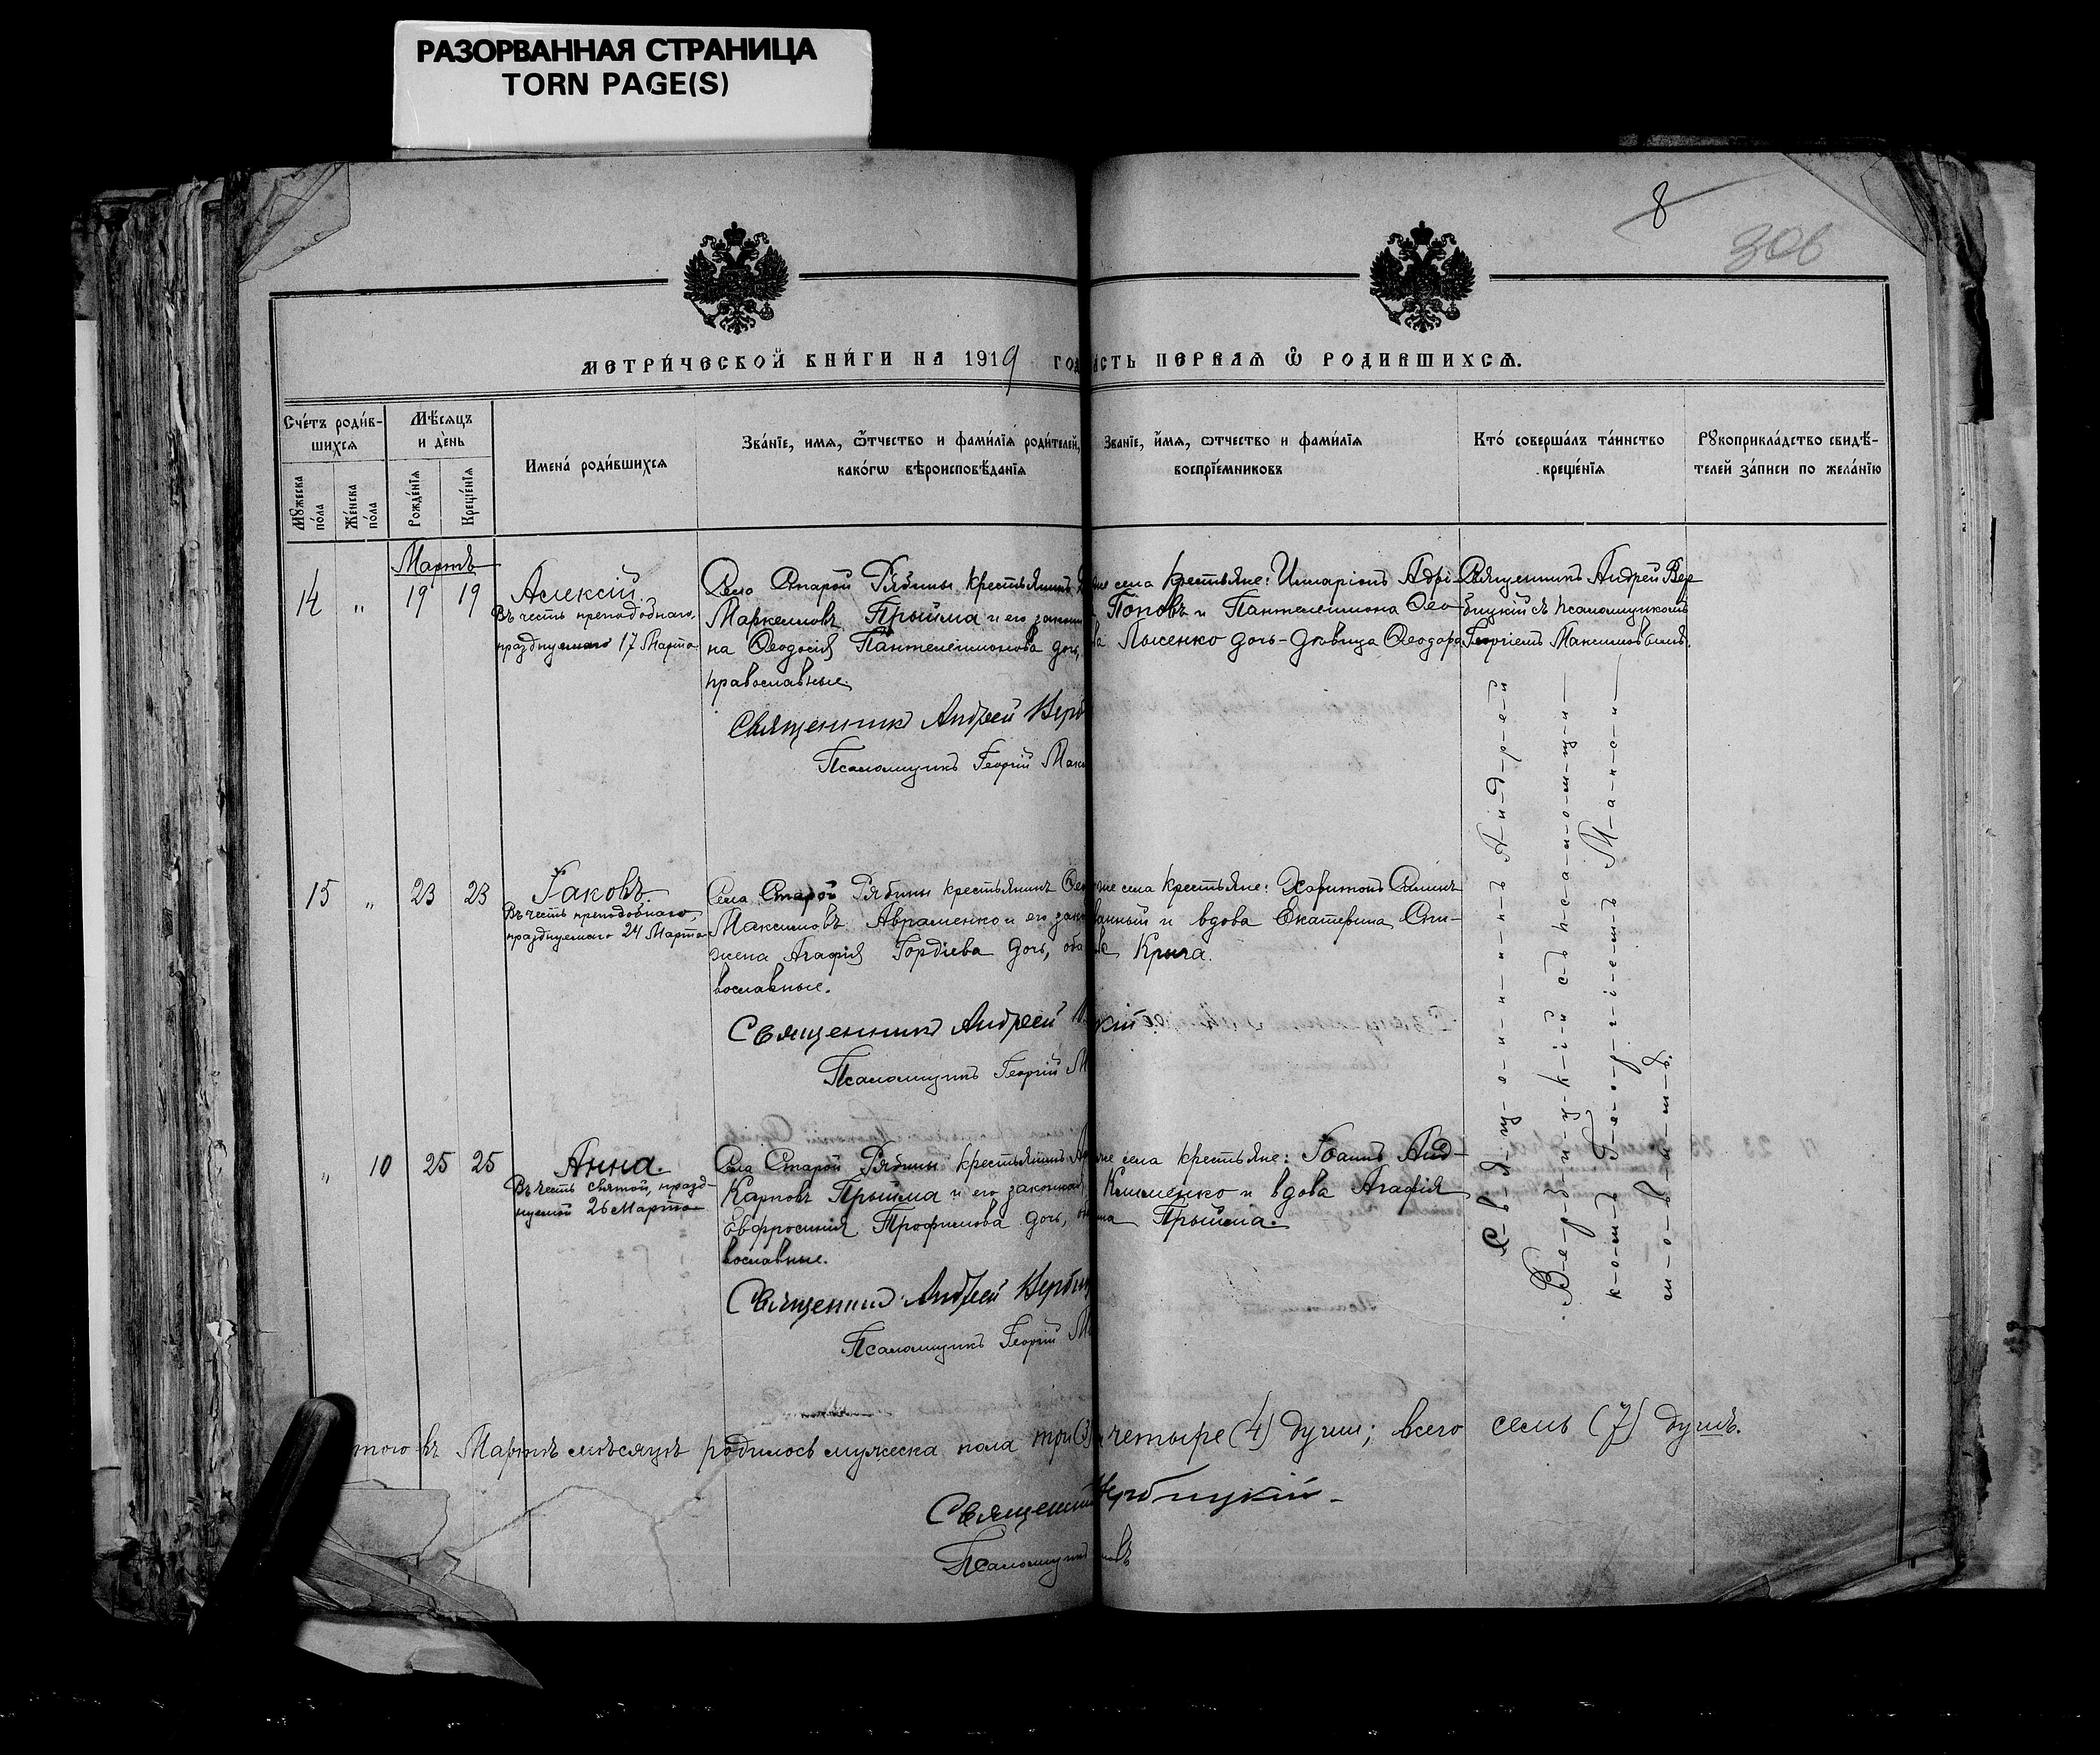 РАЗОРВАННАЯ СТРАНИЦА
TORN PAGE(S)
8
306
МЕТРИ́ЧЕСКОЙ КНИ́ГИ НА 1919 ГОД
АСТЬ ПЕРВАѦ Ѿ РОДИВШИХСѦ.
Счéтъ роди́в-
шихся
Мꙋжеска
по́ла
Же́нска
по́ла
Мѣ́сяцъ
и де́нь
Рожде́нїя
Креще́нїя
Имена́ роди́вшихся
Зва́нїе, имя, ѻ́тчество и фами́лїя роди́телей,
како́гѡ вѣроисповѣ́данїя
Зва́нїе, и́мя, ѻтчество и фами́лїя
воспрїе́мниковъ
Кто́ совершáлъ тáинство
креще́нїя
Рꙋкоприклáдство свидѣ́-
телей зáписи по желáнїю
Мартъ
14 „ 19 19
Алексій.
Въ честь преподобнаго,
празднуемаго 17 Марта
Села Старой Рябины крестьянинъ
Маркелловъ Прыйма и его законн
на Ѳеодосія Пантелеимонова дочь,
православные.
Священникъ Андрей Верб
Псаломщикъ Георгій Макс
же села крестьяне: Илларіонъ Адрі-
Поповъ и Пантелеимона Ѳео-
ва Лысенко дочь-дѣвица Ѳеодора
Священникъ Андрей Вер-
бицкій съ псаломщикомъ
Георгіемъ Максимовымъ.
15 „ 23 23
Іаковъ.
Въ честь преподобнаго,
празднуемаго 24 Марта
Села Старой Рябины крестьянинъ Ѳео
Максимовъ Авраменко и его закон
жена Агафія Гордіева дочь, оба
вославные.
Священникъ Андрей
Псаломщикъ Георгій М
же села крестьяне: Харитонъ
и вдова Екатерина
ва Крыга.
кій.
„ 10 25 25
Анна.
Въ честь святой, празд-
нуемой 26 Марта
Села Старой Рябины крестьянинъ
Карповъ Прыйма и его законная
Евфросинія Трофимова дочь,
вославные.
Священникъ Андрей Вербиц
Псаломщикъ Георгій М
же села крестьяне: Іоаннъ Анд-
Клименко и вдова Агафія
Прыйма.
С-в-я-щ-е-н-н-и-к-ъ А-н-д-р-е-й
В-е-р-б-и-ц-к-і-й с-ъ п-с-а-л-о-м-щ-и-
к-о-м-ъ Г-е-о-р-г-і-е-м-ъ М-а-к-с-и-
м-о-в-ы-м-ъ.
того въ Мартѣ мѣсяцѣ родилось мужеска пола три (3)
четыре (4) души; всего семь (7) душъ.
Священни
ербицкій.
Псаломщикъ
мовъ